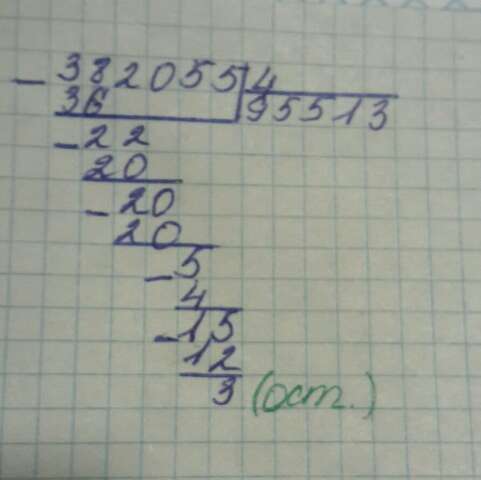 - 382055 4
36 95513
- 22
20
- 20
20
- 5
4
- 15
12
3 (ост.)